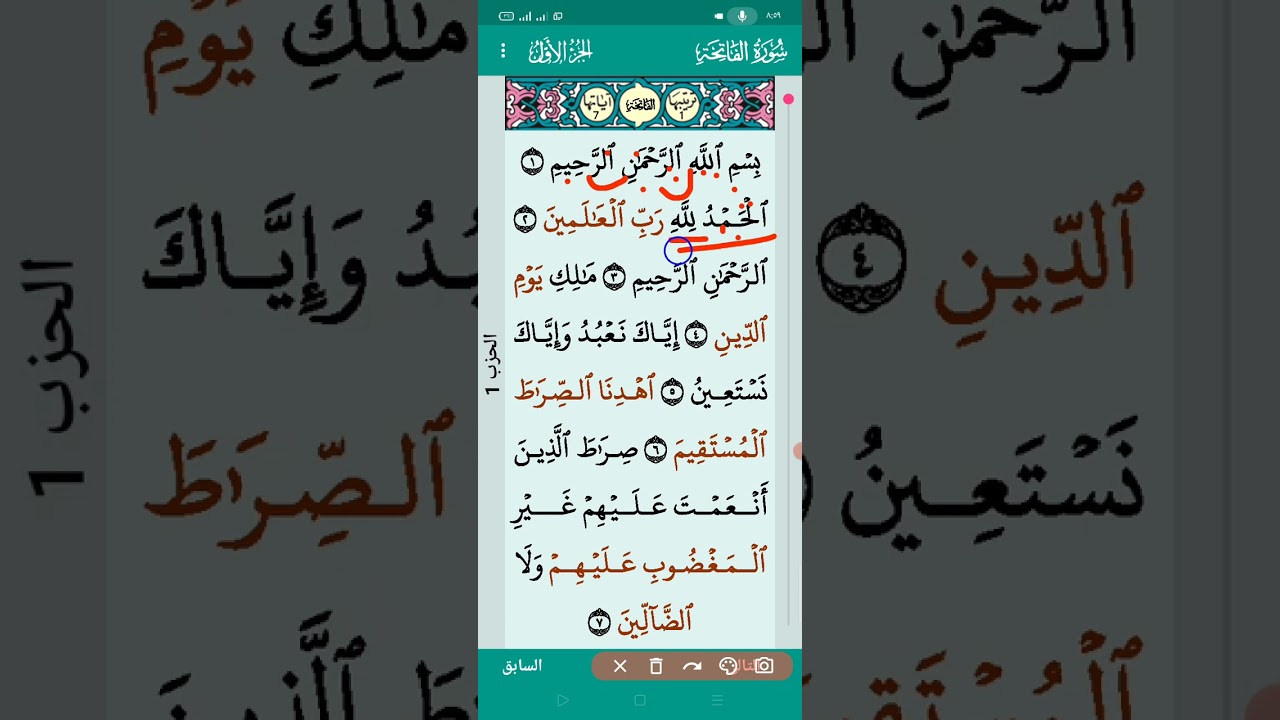 ٨:٥٩
سُورَةُ الفَاتِحَةِ الجُزْءُ الأَوَّلُ
ترتيبها 1 الفَاتِحَة اياتها 7
بِسْمِ ٱللَّهِ ٱلرَّحْمَٰنِ ٱلرَّحِيمِ ١
ٱلْحَمْدُ لِلَّهِ رَبِّ ٱلْعَٰلَمِينَ ٢
ٱلرَّحْمَٰنِ ٱلرَّحِيمِ ٣ مَٰلِكِ يَوْمِ
ٱلدِّينِ ٤ إِيَّاكَ نَعْبُدُ وَإِيَّاكَ
نَسْتَعِينُ ٥ ٱهْدِنَا ٱلصِّرَٰطَ
ٱلْمُسْتَقِيمَ ٦ صِرَٰطَ ٱلَّذِينَ
أَنْعَمْتَ عَلَيْهِمْ غَيْرِ
ٱلْمَغْضُوبِ عَلَيْهِمْ وَلَا
ٱلضَّآلِّينَ ٧
الحزب 1
السابق